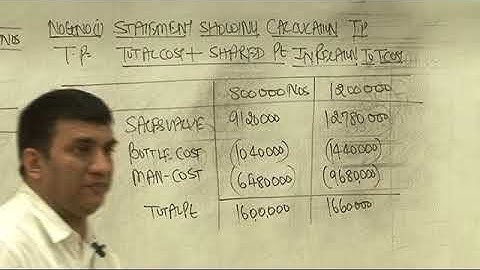 NOS
NOGNO(i) STATEMENT SHOWING CALCULATION TP
T.P = TOTALCOST + SHARED Pt IN RELATION TO TCOST
800000 NOS 1200000
SALESVALUE 9120000 12780000
BOTTLE COST (1040000) (1440000)
MAN-COST (6480000) (9680000)
TOTAL Pt 1600,000 1660000